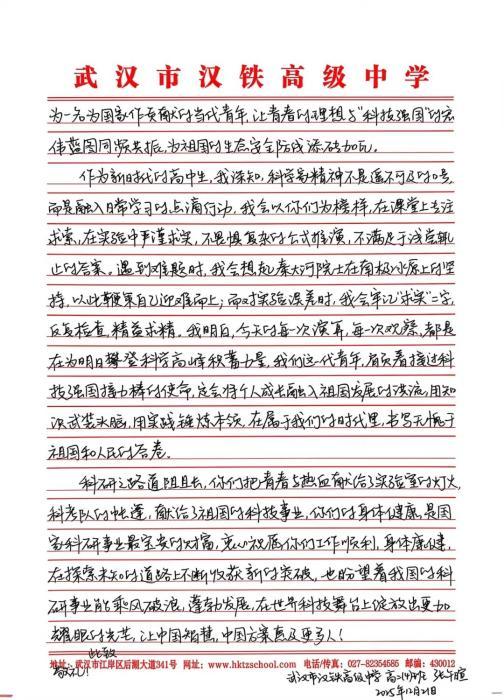 武汉市汉铁高级中学
为一名为国家作贡献的当代青年，让青春的理想与“科技强国”的宏
伟蓝图同频共振，为祖国的生态安全防线添砖加瓦。
作为新时代的高中生，我深知，科学家精神不是遥不可及的口号，
而是融入日常学习的点滴行动。我会以你们为榜样，在课堂上专注
求索，在实验中严谨求实，不畏惧复杂的公式推演，不满足于浅尝辄
止的答案。遇到难题时，我会想起秦大河院士在南极冰原上的坚
持，以此鞭策自己迎难而上；面对实验误差时，我会牢记“求实”二字，
反复检查，精益求精。我明白，今天的每一次演算，每一次观察，都是
在为明日攀登科学高峰积蓄力量。我们这一代青年，肩负着接过科
技强国接力棒的使命，定会将个人成长融入祖国发展的洪流，用知
识武装头脑，用实践锤炼本领，在属于我们的时代里，书写无愧于
祖国和人民的答卷。
科研之路道阻且长，你们把青春与热血献给了实验室的灯火，
科考队的帐篷，献给了祖国的科技事业，你们的身体健康，是国
家科研事业最宝贵的财富，衷心祝愿你们工作顺利，身体康健，
在探索未知的道路上不断收获新的突破，也盼望着我国的科
研事业能乘风破浪，蓬勃发展，在世界科技舞台上绽放出更加
耀眼的光芒，让中国智慧，中国方案惠及更多人！
此致
敬礼！
地址：武汉市江岸区后湖大道341号 网址：www.hktzschool.com 电话：027-82354585 邮编：430012
武汉市汉铁高级中学 高
2025年12月21日